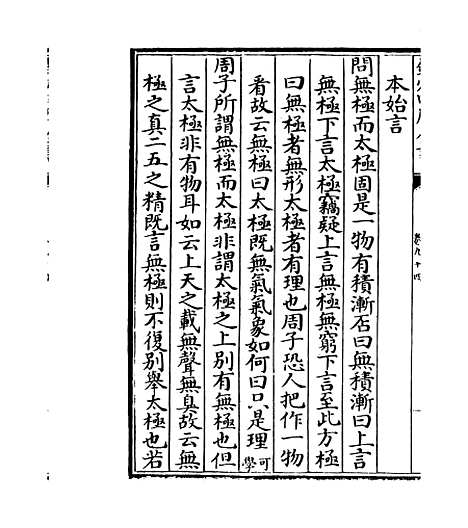 本始言
問無極而太極固是一物有積漸否曰無積漸曰上言
無極下言太極竊疑上言無極無窮下言至此方極
曰無極者無形太極者有理也周子恐人把作一物
看故云無極曰太極既無氣氣象如何曰只是理可學
周子所謂無極而太極非謂太極之上別有無極也但
言太極非有物耳如云上天之載無聲無臭故云無
極之真二五之精既言無極則不復別舉太極也若